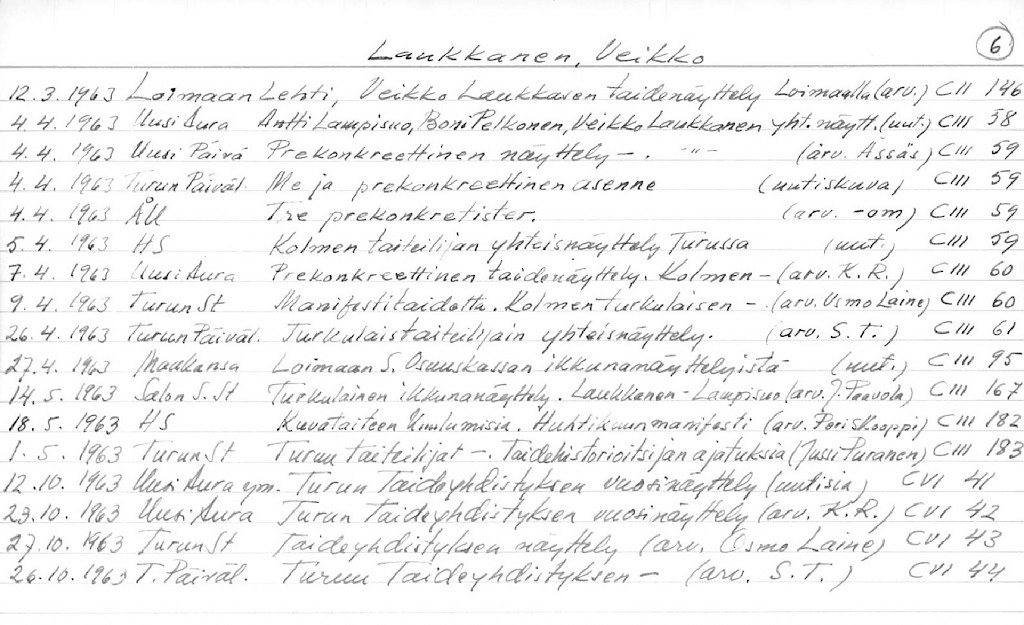 6
Laukkanen, Veikko
12.3.1963 Loimaan Lehti, Veikko Laukkasen taidenäyttely Loimaalla (arv.) CII 146
4.4.1963 Uusi Aura Antti Lampisuo, Boni Pelkonen, Veikko Laukkanen yht. näytt. (uut.) CIII 58
4.4.1963 Uusi Päivä Prekonkreettinen näyttely -. -"- (arv. Assäs) CIII 59
4.4.1963 Turun Päiväl. Me ja prekonkreettinen asenne (uutiskuva) CIII 59
4.4.1963 ÅU Tre prekonkretister. (arv. -om) CIII 59
5.4.1963 HS Kolmen taiteilijan yhteisnäyttely Turussa (uut.) CIII 59
7.4.1963 Uusi Aura Prekonkreettinen taidenäyttely. Kolmen - (arv. K.R.) CIII 60
9.4.1963 Turun St Manifestitaidetta. Kolmen turkulaisen -. (arv. Osmo Laine) CIII 60
26.4.1963 Turun Päiväl. Turkulaistaiteilijain yhteisnäyttely. (arv. S.T.) CIII 61
27.4.1963 Maakansa Loimaan S. Osuuskassan ikkunanäyttelyistä (uut.) CIII 95
14.5.1963 Salon S. St Turkulainen ikkunanäyttely. Laukkanen - Lampisuo (arv. J. Paavola) CIII 167
18.5.1963 HS Kuvataiteen kuulumisia. Huhtikuun manifesti (arv. Periskooppi) CIII 182
1.5.1963 Turun St Turun taiteilijat -. Taidehistorioitsijan ajatuksia (Jussi Puranen) CIII 183
12.10.1963 Uusi Aura ym. Turun Taideyhdistyksen vuosinäyttely (uutisia) CVI 41
23.10.1963 Uusi Aura Turun Taideyhdistyksen vuosinäyttely (arv. K.R.) CVI 42
27.10.1963 Turun St Taideyhdistyksen näyttely (arv. Osmo Laine) CVI 43
26.10.1963 T. Päiväl. Turun Taideyhdistyksen - (arv. S.T.) CVI 44